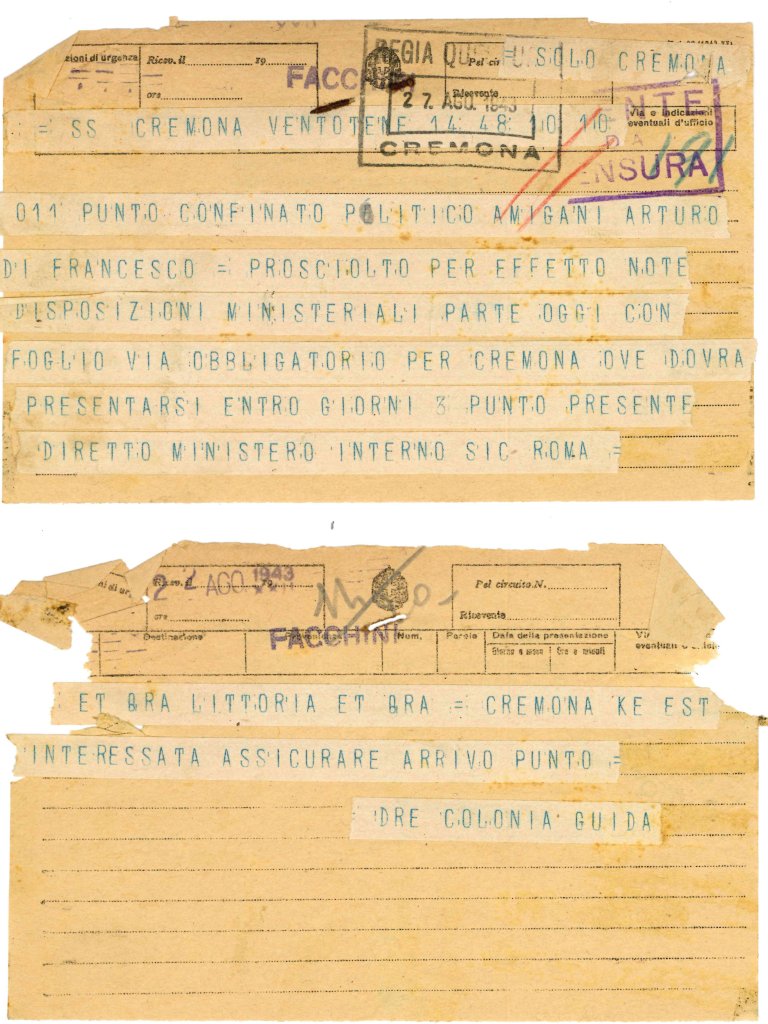 zioni di urgenza Ricev. il 19 Pel cir = SOLO CREMONA
FACCHINI
REGIA QUESTURA
ore Ricevente
27 AGO. 1943
CREMONA
ENTE
DA
ENSURA
191
Via e indicazioni
eventuali d'ufficio
= SS CREMONA VENTOTENE 14 48 10 110
011 PUNTO CONFINATO POLITICO AMIGANI ARTURO
DI FRANCESCO = PROSCIOLTO PER EFFETTO NOTE
DISPOSIZIONI MINISTERIALI PARTE OGGI CON
FOGLIO VIA OBBLIGATORIO PER CREMONA OVE DOVRA
PRESENTARSI ENTRO GIORNI 3 PUNTO PRESENTE
DIRETTO MINISTERO INTERNO SIC ROMA =
ni di ur. Ricev. il 19 Pel circuito N.
AGO 1943
ore Ricevente
FACCHINI
Destinazione Provenienza Num. Parole Data della presentazione
Giorno e mese Ore e minuti
eventuali d'uffic
ET QRA LITTORIA ET QRA = CREMONA KE EST
INTERESSATA ASSICURARE ARRIVO PUNTO =
DRE COLONIA GUIDA